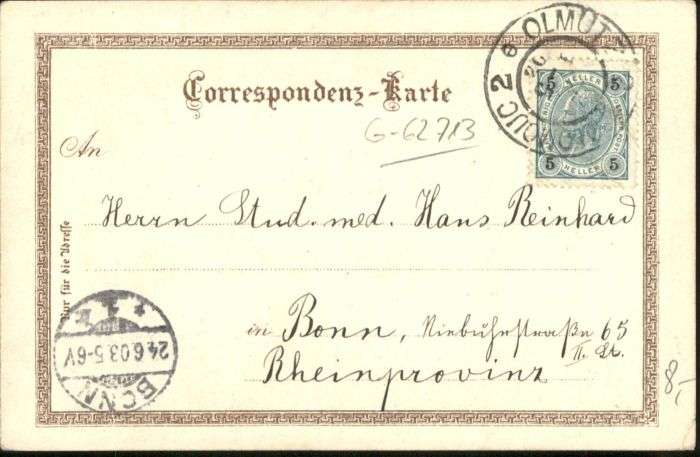 Correspondenz-Karte
OLMÜTZ
2 e
OLOMOUC
5 HELLER 5
5 HELLER 5
G-62713
An
Herrn Stud. med. Hans Reinhard
Nur für die Adresse
in Bonn, Niebuhrstraße 65
II. St.
Rheinprovinz
BONN
24.6.03.5-6V
8,-